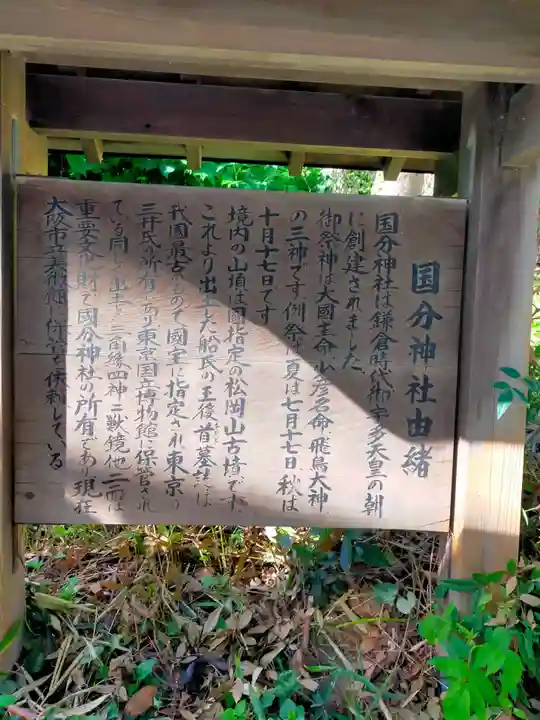 国分神社由緒
国分神社は鎌倉時代御宇多天皇の朝
に創建されました
御祭神は大國主命少彦名命飛鳥大神
の三神です例祭は夏は七月十七日、秋は
十月十七日です
境内の山頂は國指定の松岡山古墳です、
これより出土た船氏の王後首墓誌は
我國最古のもので國宝に指定され東京の
三井氏の所有であり東京国立博物館に保官され
ている同じ出土の三角縁四神二獣鏡他二面は
重要文化財で國分神社の所有であり現在
大阪市立美術館に保管依頼している